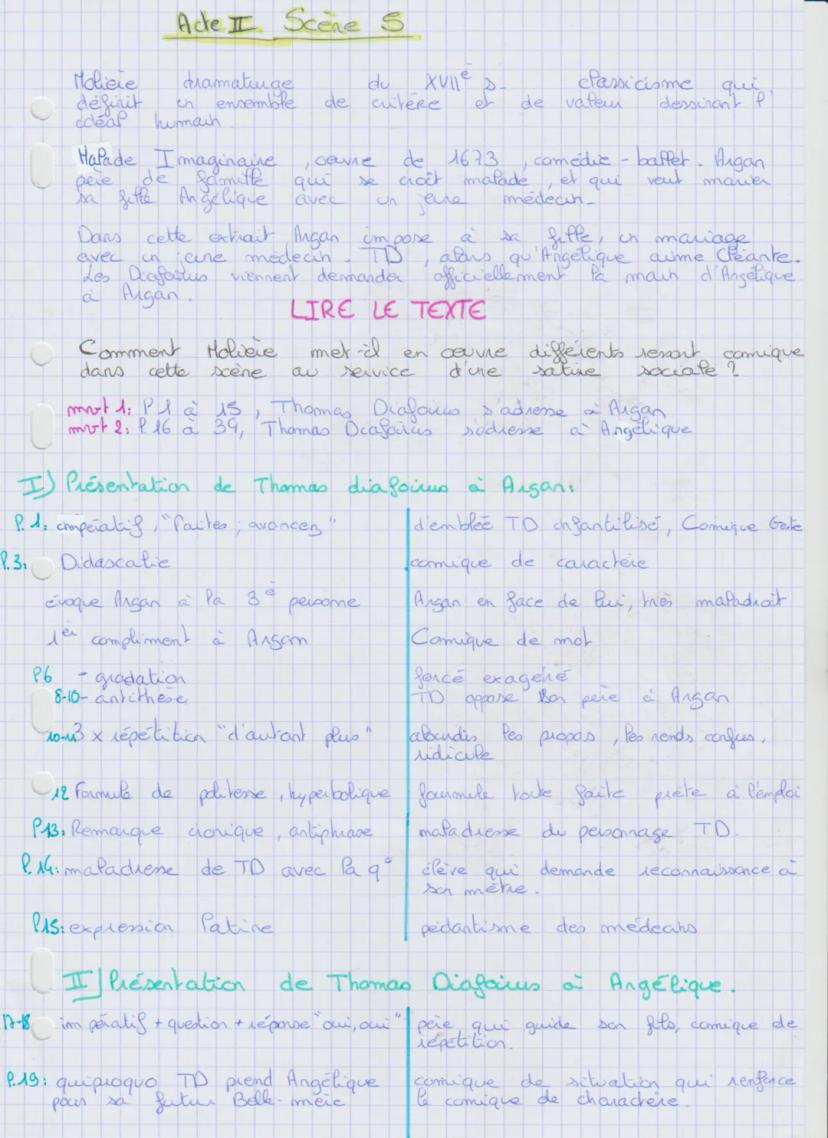 Acte II Scène 5
Molière dramaturge du XVIIè s. classicisme qui
définit un ensemble de critère et de valeur dessinant l'
idéal humain
Malade Imaginaire, œuvre de 1673, comédie-ballet. Argan
père de famille qui se croît malade, et qui veut marier
sa fille Angélique avec un jeune médecin.
Dans cette extrait Argan impose à sa fille, un mariage
avec un jeune médecin. TD, alors qu'Angélique aime Cléante.
Les Diafoirus viennent demander officiellement la main d'Angélique
à Argan.
LIRE LE TEXTE
Comment Molière met-il en œuvre différents ressort comique
dans cette scène au service d'une satire sociale ?
mvt 1: l 1 à 15, Thomas Diafoirus s'adresse à Argan
mvt 2: l 16 à 39, Thomas Diafoirus s'adresse à Angélique
I) Présentation de Thomas diafoirus à Argan:
l. 1: impératif, "faites, avancez" d'emblée TD infantilisé, Comique Geste
l.3: Didascalie comique de caractère
évoque Argan à la 3è personne Argan en face de lui, très maladroit
1er compliment à Argan Comique de mot
l6 - gradation forcé exagéré
8-10- antithèse TD oppose son père à Argan
10-11 3 x répétition "d'autant plus" alourdis les propos, les rends confus,
ridicule
12 Formule de politesse, hyperbolique formule toute faite prête à l'emploi
l13: Remarque ironique, antiphrase maladresse du personnage TD.
l.14: maladresse de TD avec la q° élève qui demande reconnaissance à
son mètre.
l15: expression latine pédantisme des médecins
II) Présentation de Thomas Diafoirus à Angélique.
17-18 impératif + question + réponse "oui, oui" père qui guide son fils, comique de
répétition.
l.19: quiproquo TD prend Angélique comique de situation qui renforce
pour sa futur Belle-mère le comique de charactère.